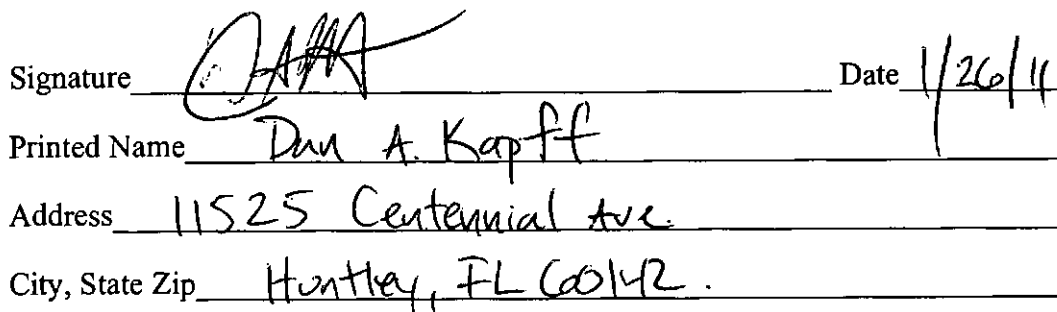 Signature Date 1/26/11
Printed Name Dan A. Kapff
Address 11525 Centennial Ave.
City, State Zip Huntley, IL 60142.